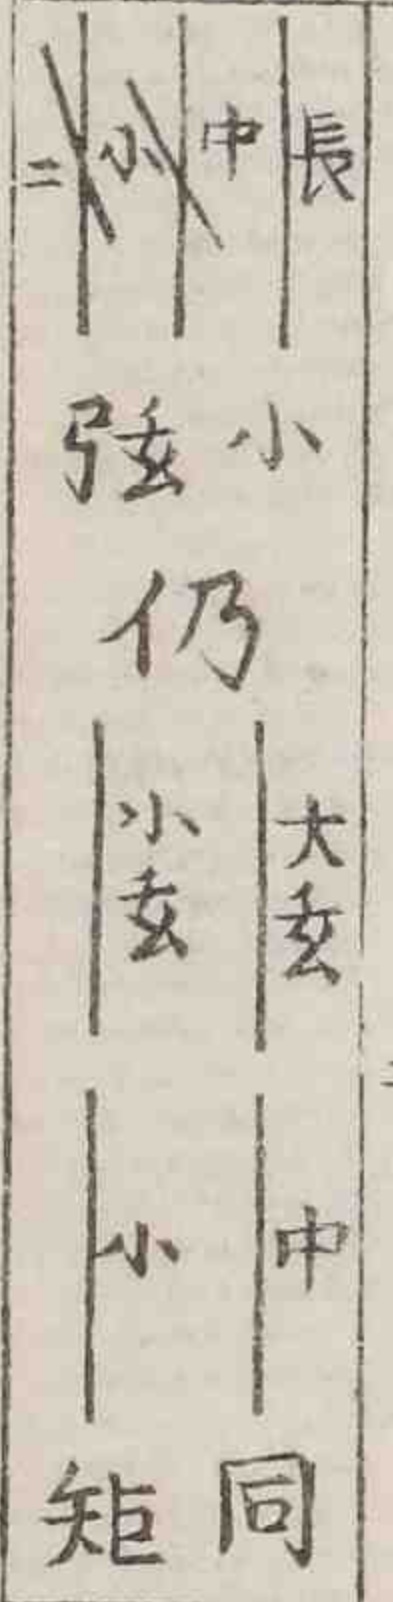 長
中
小
二
小弦
仍
大玄
小玄
中
小
同矩